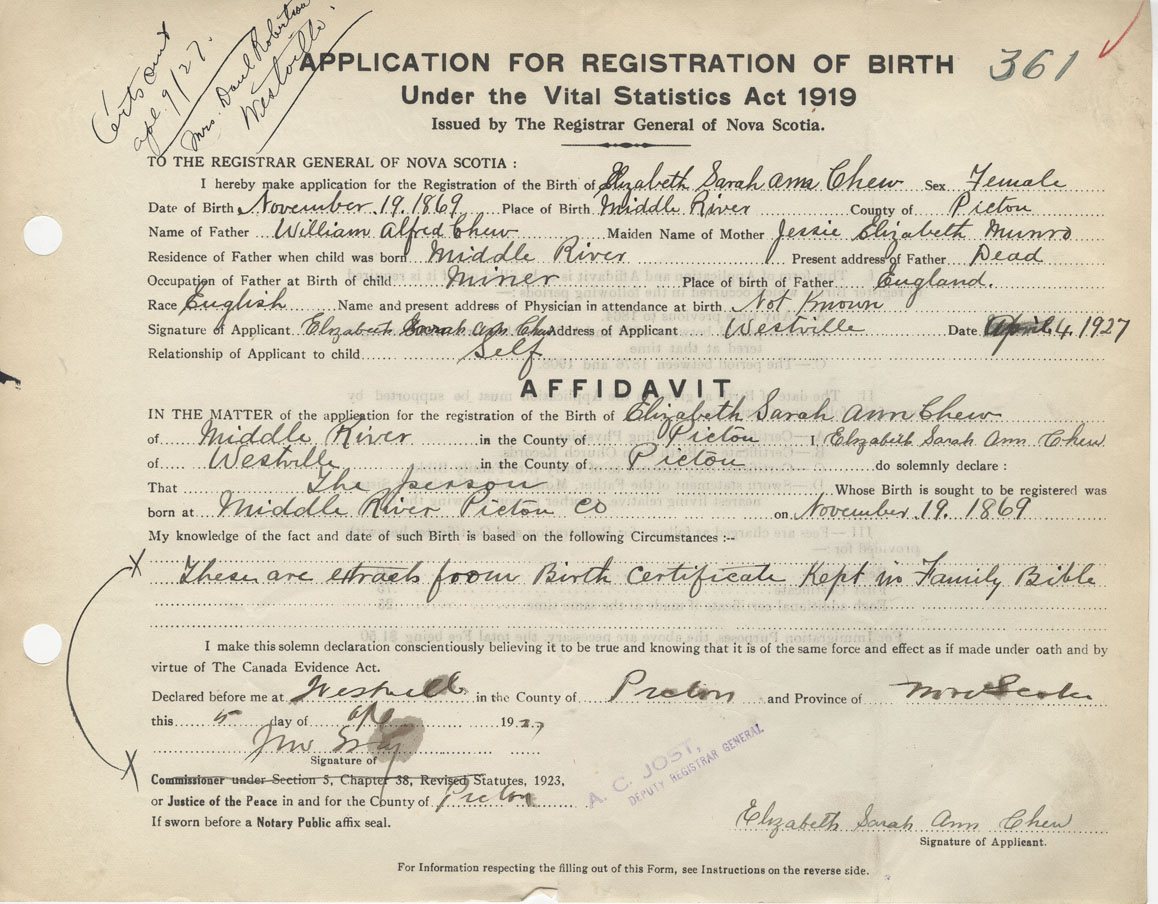 Certs out
apl. 9/27.
Mrs. David Robertson
Westville.
361
APPLICATION FOR REGISTRATION OF BIRTH
Under the Vital Statistics Act 1919
Issued by The Registrar General of Nova Scotia.
TO THE REGISTRAR GENERAL OF NOVA SCOTIA :
I hereby make application for the Registration of the Birth of Elizabeth Sarah Ann Chew Sex Female
Date of Birth November 19. 1869 Place of Birth Middle River County of Picton
Name of Father William Alfred Chew Maiden Name of Mother Jessie Elizabeth Munro
Residence of Father when child was born Middle River Present address of Father Dead
Occupation of Father at Birth of child Miner Place of birth of Father England.
Race English Name and present address of Physician in attendance at birth Not Known
Signature of Applicant Elizabeth Sarah Ann Chew Address of Applicant Westville Date April 4. 1927
Relationship of Applicant to child Self
AFFIDAVIT
IN THE MATTER of the application for the registration of the Birth of Elizabeth Sarah Ann Chew
of Middle River in the County of Picton I, Elizabeth Sarah Ann Chew
of Westville in the County of Picton do solemnly declare :
That The person Whose Birth is sought to be registered was
born at Middle River Picton Co on November 19. 1869
My knowledge of the fact and date of such Birth is based on the following Circumstances :--
X These are extracts froom Birth Certificate Kept in Family Bible
I make this solemn declaration conscientiously believing it to be true and knowing that it is of the same force and effect as if made under oath and by
virtue of The Canada Evidence Act.
Declared before me at Westville in the County of Picton and Province of Nova Scotia
this 5 day of apl 1927
Jno Gray
Signature of
X Commissioner under Section 5, Chapter 38, Revised Statutes, 1923,
or Justice of the Peace in and for the County of Picton
If sworn before a Notary Public affix seal.
A. C. JOST,
DEPUTY REGISTRAR GENERAL
Elizabeth Sarah Ann Chew
Signature of Applicant.
For Information respecting the filling out of this Form, see Instructions on the reverse side.